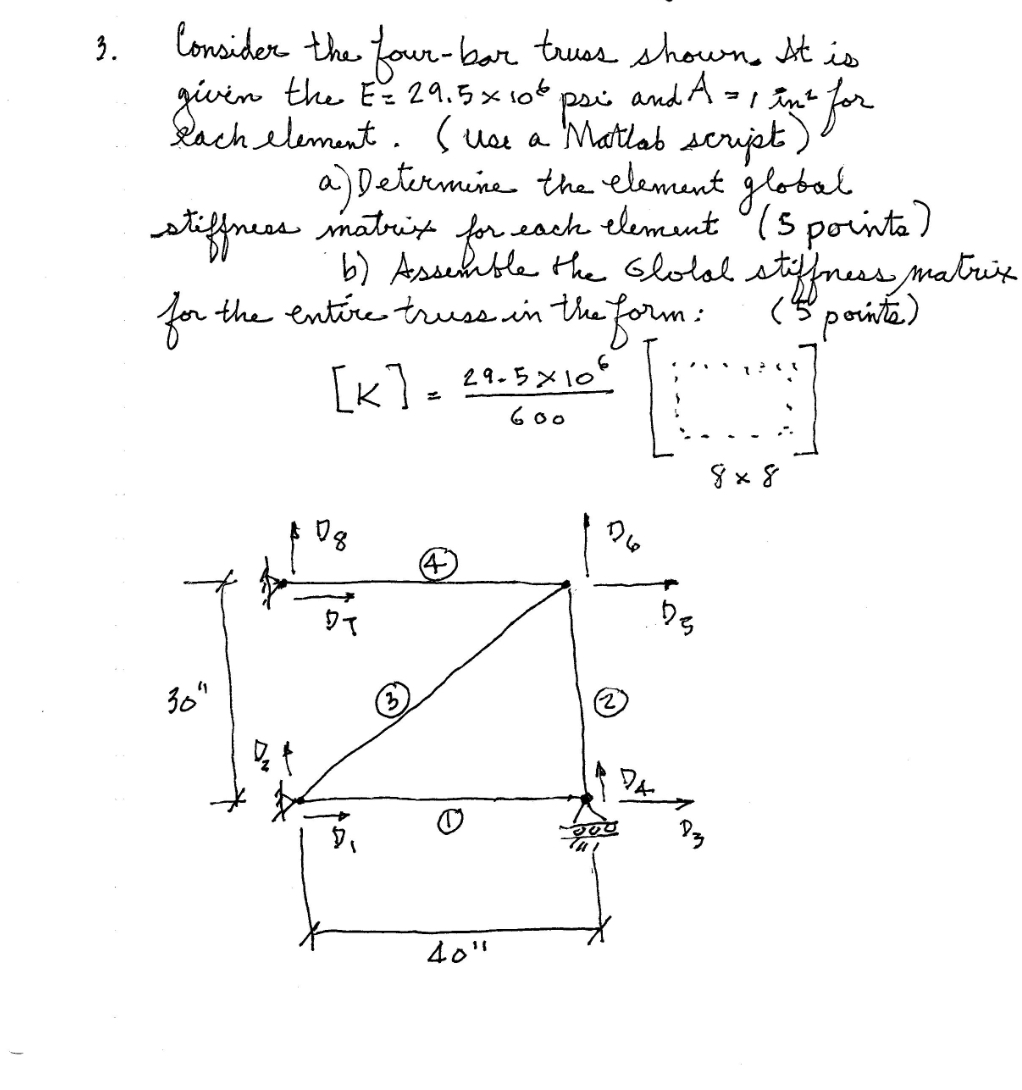 3. Consider the four-bar truss shown. It is
given the E = 29.5 × 10⁶ psi and A = 1 in² for
each element. (Use a Matlab script)
a) Determine the element global
stiffness matrix for each element (5 points)
b) Assemble the Global stiffness matrix
for the entire truss in the form: (5 points)
[K] = 29.5 × 10⁶
600
8 × 8
D8
D6
4
D7
D5
30"
3
2
D2
D4
D1
1
D3
40"